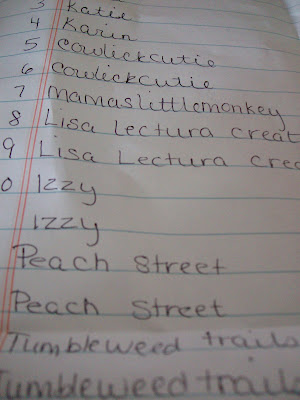 3 Katie
4 Karin
5 cowlickcutie
6 cowlickcutie
7 mamaslittlemonkey
8 Lisa Lectura Creat
9 Lisa Lectura Crea
0 Izzy
Izzy
Peach Street
Peach Street
Tumbleweed trails
Tumbleweed trails